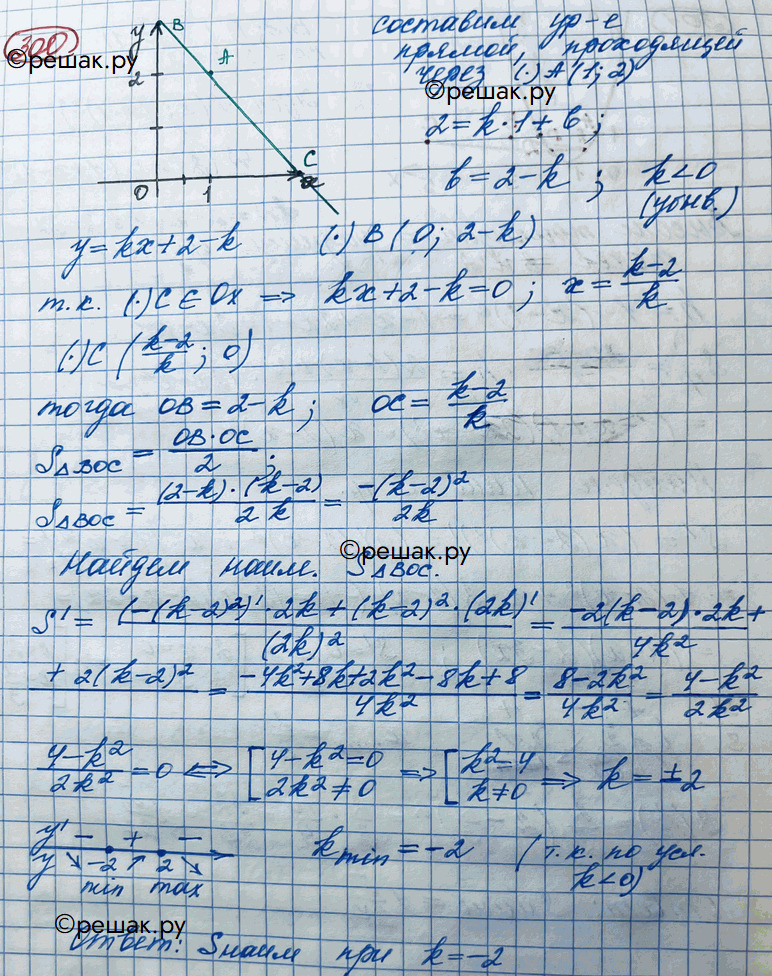 300
©решак.ру
y B
A
2
C
0 1 x
составим ур-е
прямой, проходящей
через (·) A (1; 2)
©решак.ру
2 = k·1 + b ;
b = 2 - k ; k < 0
(убыв.)
y = kx + 2 - k (·) B (0; 2-k)
т.к. (·) C ∈ Ox ⇒ kx + 2 - k = 0 ; x = (k-2)/k
(·) C ((k-2)/k ; 0)
тогда OB = 2-k ; OC = (k-2)/k
S△BOC = (OB·OC)/2 ;
S△BOC = ((2-k)·(k-2))/(2k) = (-(k-2)²)/(2k)
©решак.ру
©решак.ру
Найдем наим. S△BOC.
S' = ((-(k-2)²)'·2k + (k-2)²·(2k)')/(2k)² = (-2(k-2)·2k +
+ 2(k-2)²)/(4k²) = (-4k²+8k+2k²-8k+8)/(4k²) = (8-2k²)/(4k²) = (4-k²)/(2k²)
(4-k²)/(2k²) = 0 ⇔ [4-k²=0 2k²≠0 ⇒ [k²=4 k≠0 ⇒ k = ±2
y' − + −
y ↘ -2 ↗ 2 ↘
min max
kmin = -2 (т.к. по усл.
k<0)
©решак.ру
Ответ: Sнаим при k = -2